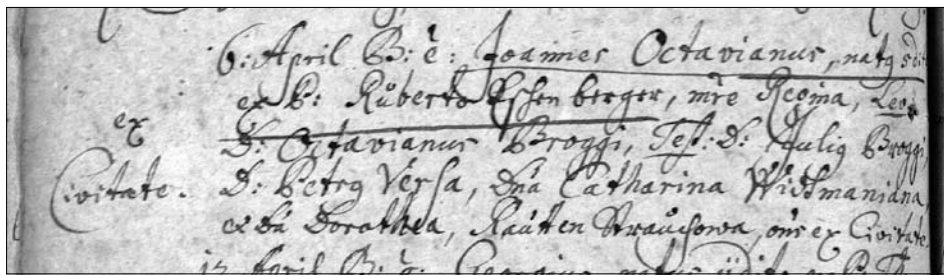 6: April B: e: Joannes Octavianus, natq
ex P: Růberto Eschenberger, mře Regina, Leo
ex
D: Octavianus Broggi, Test: D: Julig Broggi,
Civitate.
D: Petrg Versa, Dna Catharina Widtmaniana,
et Da Dorothea, Rautten Strauchova, oñs ex Civitate.
12 April B: e: Georgius natus